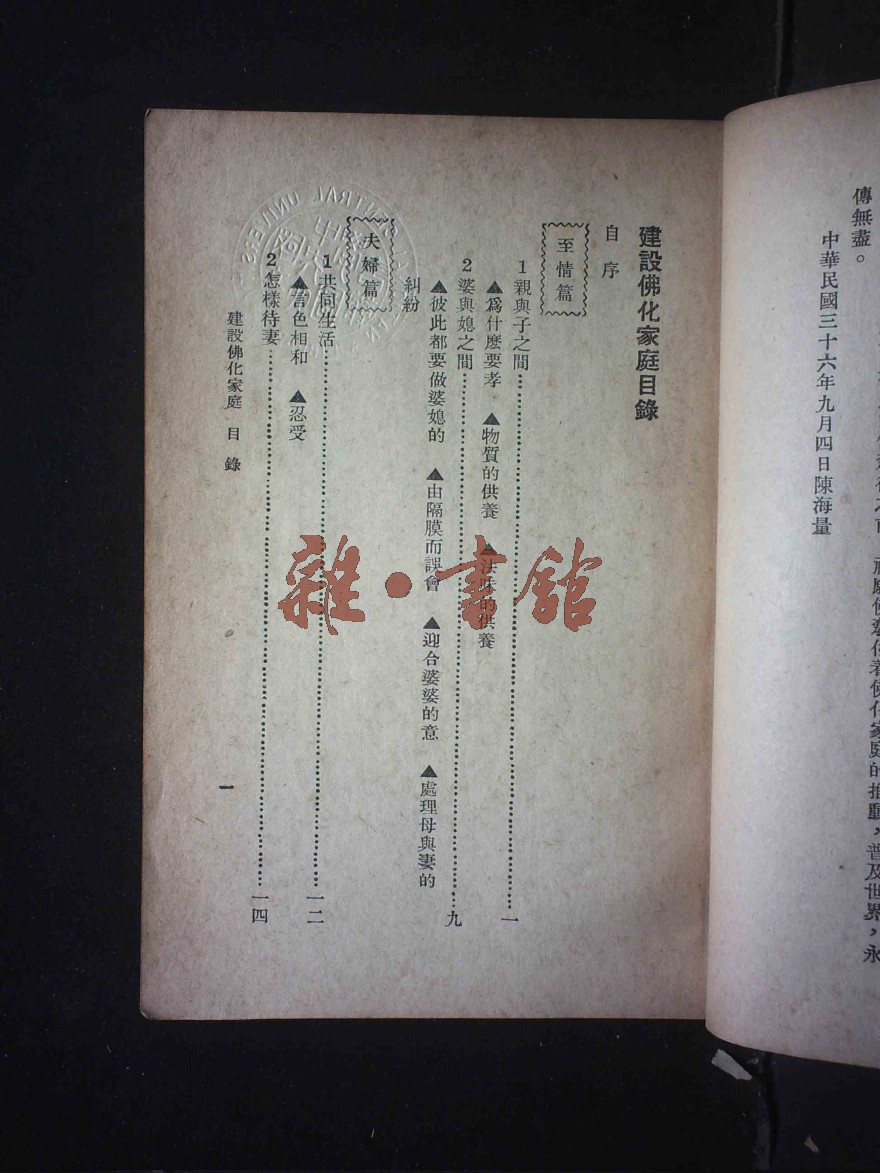 傳無盡。
中華民國三十六年九月四日陳海量
佛化家庭的推動，普及世界，永
建設佛化家庭目錄
自序
至情篇
1親與子之間……一
▲爲什麽要孝 ▲物質的供養 ▲法味的供養
2婆與媳之間……九
▲彼此都要做婆媳的 ▲由隔膜而誤會 ▲迎合婆婆的意 ▲處理母與妻的
糾紛
夫婦篇
1共同生活……一二
▲言色相和 ▲忍受
2怎樣待妻……一四
建設佛化家庭 目錄
一
雜·書館
CENTRAL UNIVERS